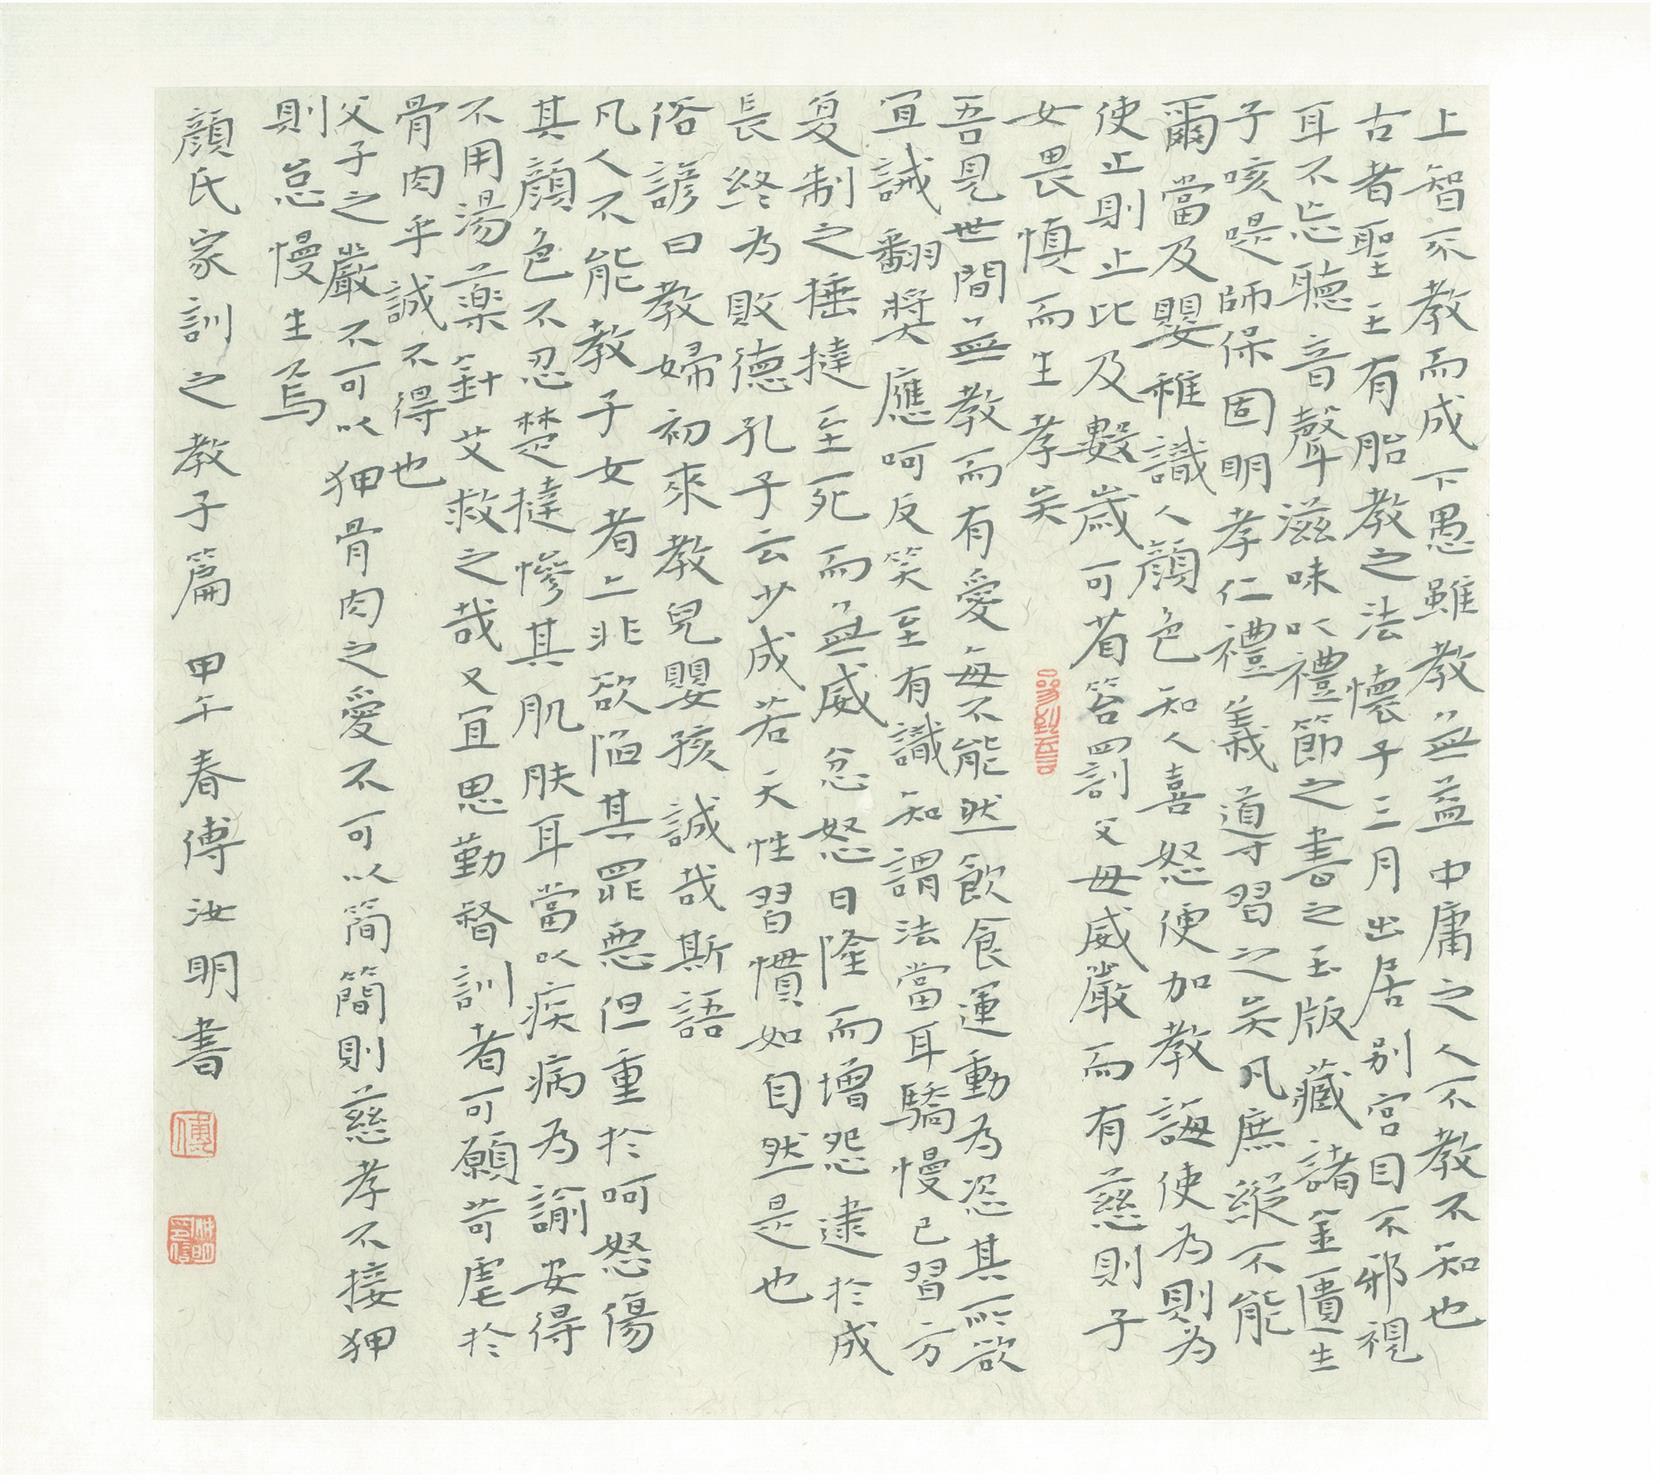 上智不教而成下愚雖教無益中庸之人不教不知也
古者聖王有胎教之法懷子三月出居别宫目不邪視
耳不忘聽音聲滋味以禮節之書之玉版藏諸金匱生
子咳㖷師保固明孝仁禮義導習之矣凡庶縱不能
爾當及嬰稚識人顔色知人喜怒便加教誨使為則為
使止則止比及數歲可省笞罰父母威嚴而有慈則子
女畏慎而生孝矣
吾見世間無教而有愛每不能然飲食運動為恣其所欲
宜誡翻奬應呵反笑至有識知謂法當耳驕慢已習方
復制之捶撻至死而無威忿怒日隆而增怨逮於成
長終為敗德孔子云少成若天性習慣如自然是也
俗諺曰教婦初來教兒嬰孩誠哉斯語
凡人不能教子女者亠非欲陷其罪惡但重於呵怒傷
其顔色不忍楚撻慘其肌膚耳當以疾病為諭安得
不用湯藥針艾救之哉又宜思勤督訓者可願苛虐於
骨肉乎誠不得也
父子之嚴不可以狎骨肉之愛不可以簡簡則慈孝不接狎
則怠慢生焉
顔氏家訓之教子篇 甲午春傅汝明書
傅